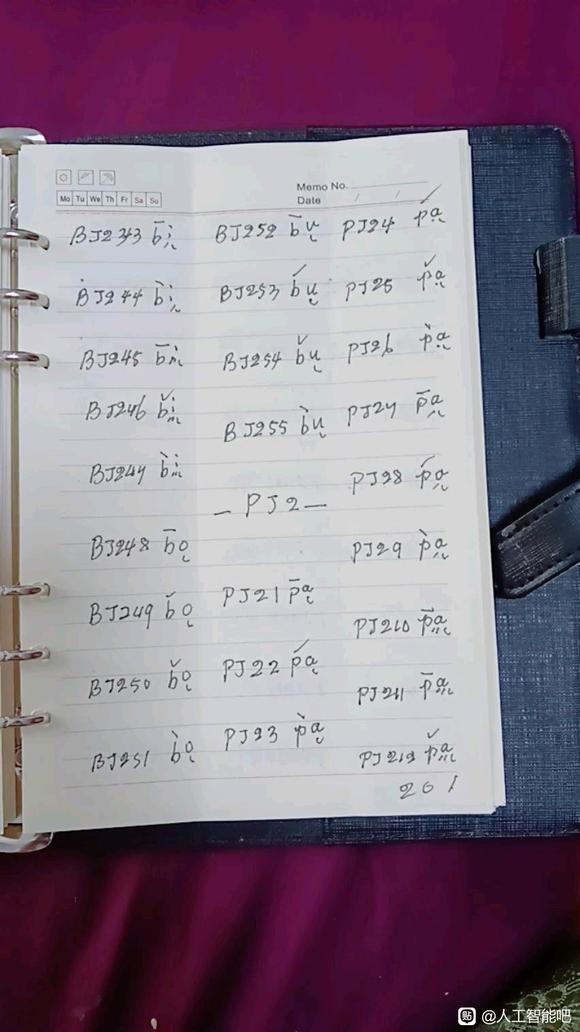 Memo No.
Mo Tu We Th Fr Sa Su
Date / /
BJ243 b̄i
BJ244 b̀i
BJ245 b̄i
BJ246 b̌i
BJ247 b̀i
BJ248 b̄o
BJ249 b́o
BJ250 b̌o
BJ251 b̀o
BJ252 b̄u
BJ253 b́u
BJ254 b̌u
BJ255 b̀u
— PJ2 —
PJ21 p̄a
PJ22 ṕa
PJ23 p̀a
PJ24 ṕa
PJ25 p̌a
PJ26 p̀a
PJ27 p̄a
PJ28 ṕa
PJ29 p̀a
PJ210 p̄a
PJ211 p̄a
PJ212 p̌a
201
@人工智能吧